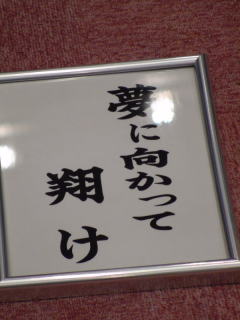 夢に向かって
翔け